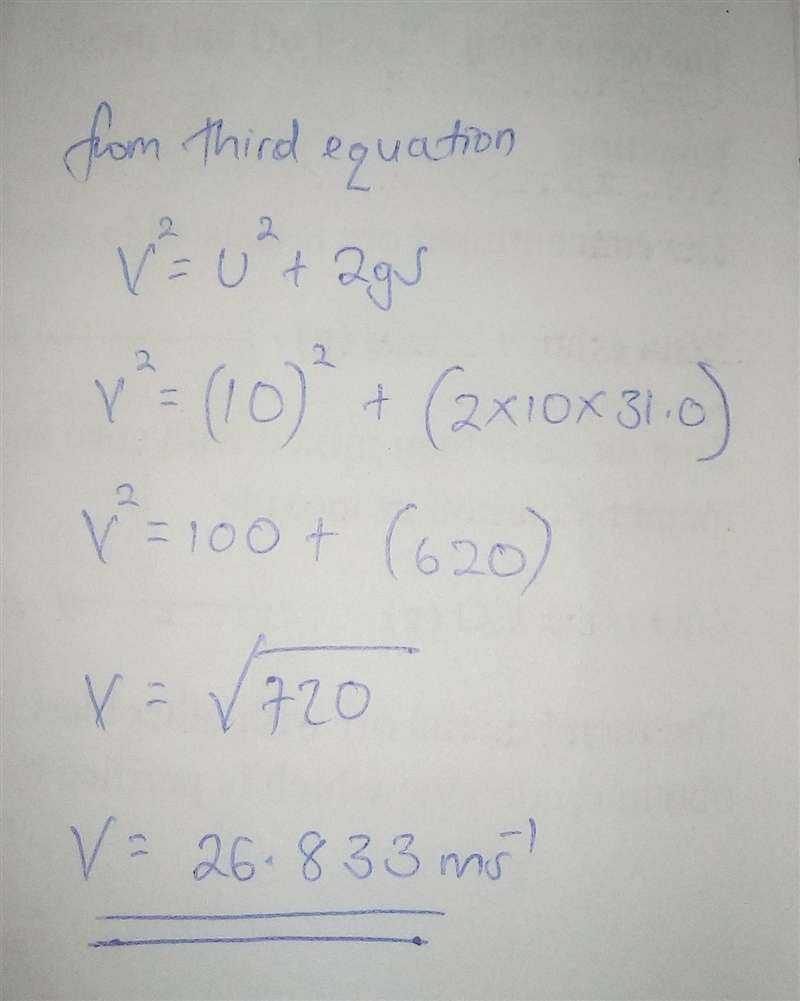 from third equation
V² = U² + 2gs
V² = (10)² + (2×10×31.0)
V² = 100 + (620)
V = √720
V = 26.833 ms⁻¹